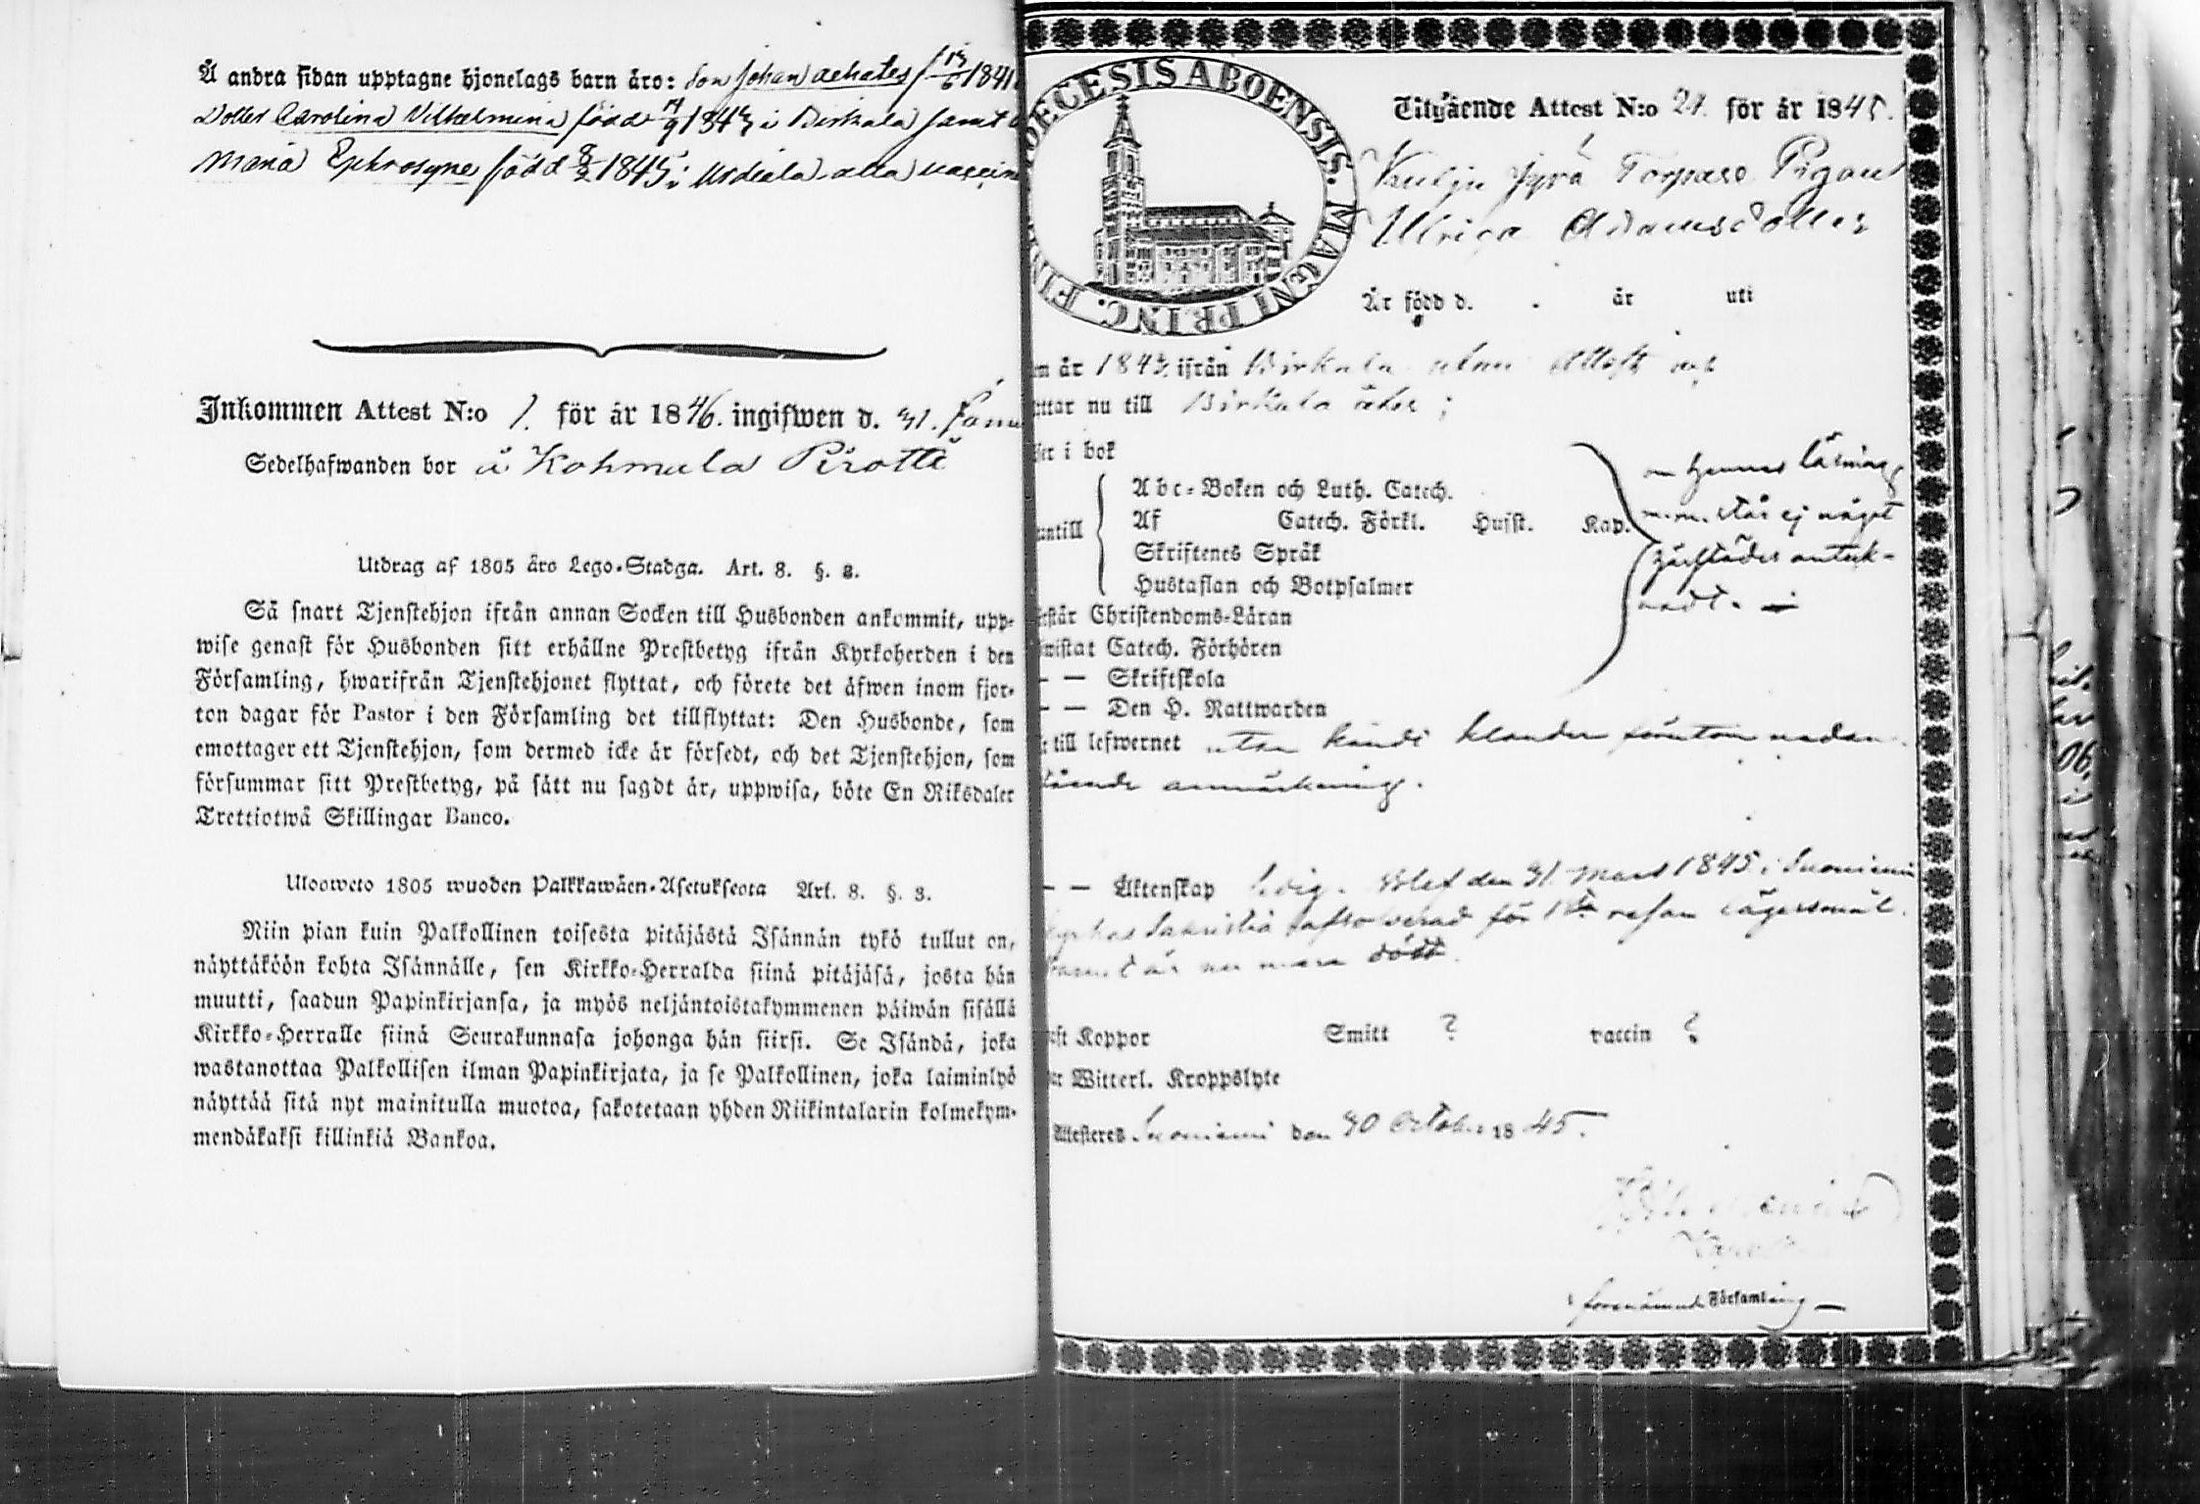 Å andra sidan upptagne hjonelags barn äro: Son Johan Achates f 13/6 1841
Dotter Carolina Vilhelmina född 1843 i Birkala samt
Maria Ephrosyne född 8/2 1845 i Urdiala alla vaccin
Inkommen Attest N:o 1. för år 1846. ingifwen d. 31. Janu
Sedelhafwanden bor å Kohmala Pirotti
Utdrag af 1805 års Lego-Stadga. Art. 8. §. 3.
Så snart Tjenstehjon ifrån annan Socken till Husbonden ankommit, upp-
wise genast för Husbonden sitt erhållne Prestbetyg ifrån Kyrkoherden i den
Församling, hwarifrån Tjenstehjonet flyttat, och förete det äfwen inom fjor-
ton dagar för Pastor i den Församling det tillflyttat: Den Husbonde, som
emottager ett Tjenstehjon, som dermed icke är försedt, och det Tjenstehjon, som
försummar sitt Prestbetyg, på sätt nu sagdt är, uppwisa, böte En Riksdaler
Trettiotwå Skillingar Banco.
Ulosweto 1805 wuoden Palkkawäen-Asetuksesta Art. 8. §. 3.
Niin pian kuin Palkollinen toisesta pitäjästä Isännän tykö tullut on,
näyttäköön kohta Isännälle, sen Kirkko-Herralda siinä pitäjäsä, josta hän
muutti, saadun Papinkirjansa, ja myös neljäntoistakymmenen päiwän sisällä
Kirkko-Herralle siinä Seurakunnasa johonga hän siirsi. Se Isändä, joka
wastanottaa Palkollisen ilman Papinkirjata, ja se Palkollinen, joka laiminlyö
näyttää sitä nyt mainitulla muotoa, sakotetaan yhden Riikintalarin kolmekym-
mendäkaksi killinkiä Bankoa.
DIECESIS ABOENSIS. MAGNI PRINC. FIN
Utgående Attest N:o 21. för år 1845.
Torpare Pigan
Ulrica Adamsdotter
Är född d. år uti
år 184 ifrån Birkala utan Attest
ttar nu till Birkala åter;
i bok
Abc-Boken och Luth. Catech.
Af Catech. Förkl. Husst. Kap.
antill
Skriftenes Språk
Hustaflan och Botpsalmer
hennes läsning
m.m. står ej något
härstädes anteck-
nadt.
står Christendoms-Läran
wistat Catech. Förhören
— — Skriftskola
— — Den H. Nattwarden
till lefwernet utan känd klander förutom nedan
stående anmärkning.
— — Äktenskap ledig. Blef den 31 Mars 1845 i Suoniemi
Kyrkas Sakristia absolverad för 1sta resan lägersmål.
Barnet är nu mera dödt.
Koppor Smitt ? vaccin ?
Witterl. Kroppslyte
Attesteres Suoniemi den 30 October 1845.
i förenämnde Församling